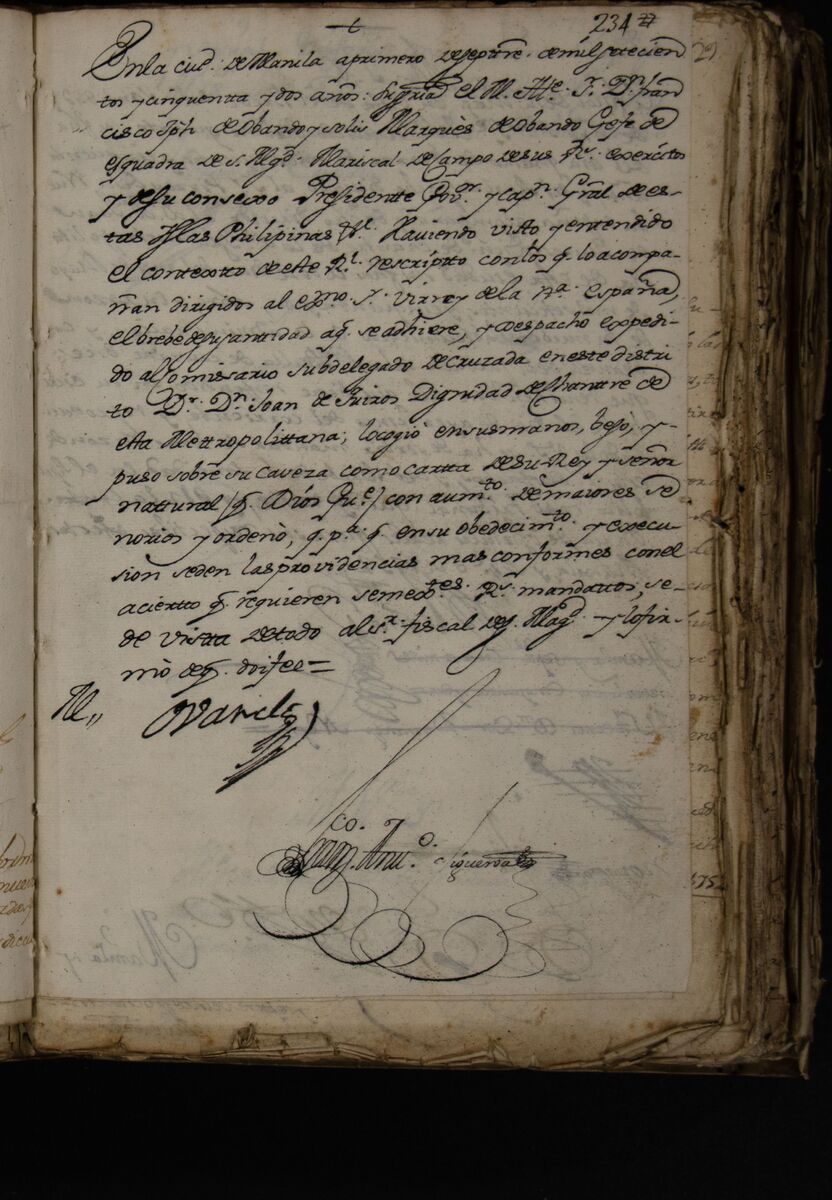 234
En la ciud. de Manila a primero de septre. de mil setecien
tos y cinquenta y dos años: el M. Itte. Sr. Dn. fran
cisco Jph. de Obando y solis Marquès de Obando Gefe de
esquadra de S. Mgd. Mariscal de Campo de sus Rs. exercitos
y de su consexo Presidente Govr. y capn. Gral de es-
tas Yslas Philipinas &a. Haviendo visto y entendido
el contextto de este Rl. rescriptto con los q. lo acompa-
ñan dirigidos al exmo. Sr. Virrey de la Na. España,
el brebe de su santidad aq. se adhiere, y despacho expedi-
do al Comissario subdelegado de Cruzada en este distri
to Dr. Dn. Joan de Dignidad de Chantre de
esta Mettropolittana; lo cogiò en sus manos, besò, y
puso sobre su caveza como cartta de su Rey y señor
nattural (q. Dios Gue.) con aumto. de maiores se
norios y ordenò, q. pa. q. en su obedecimto. y execu-
sion se den las providencias mas conformes con el
aciertto q. requieren semextes. Rs. mandattos, se-
de vistta de todo al sr. fiscal de S. Magd. y lo fir-
mò de q. doi fee =
M,, Ovando
Juan Anto. Figueroa